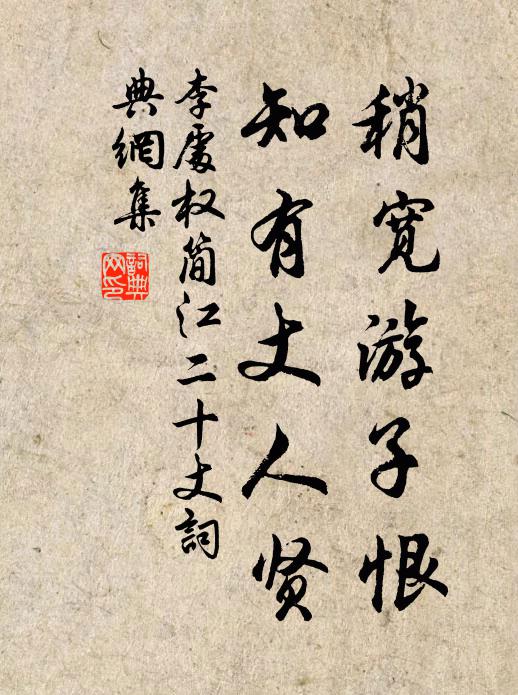 稍寛游子恨
知有丈人贤
李處权简江二十丈詞
典網集
詞典
网印